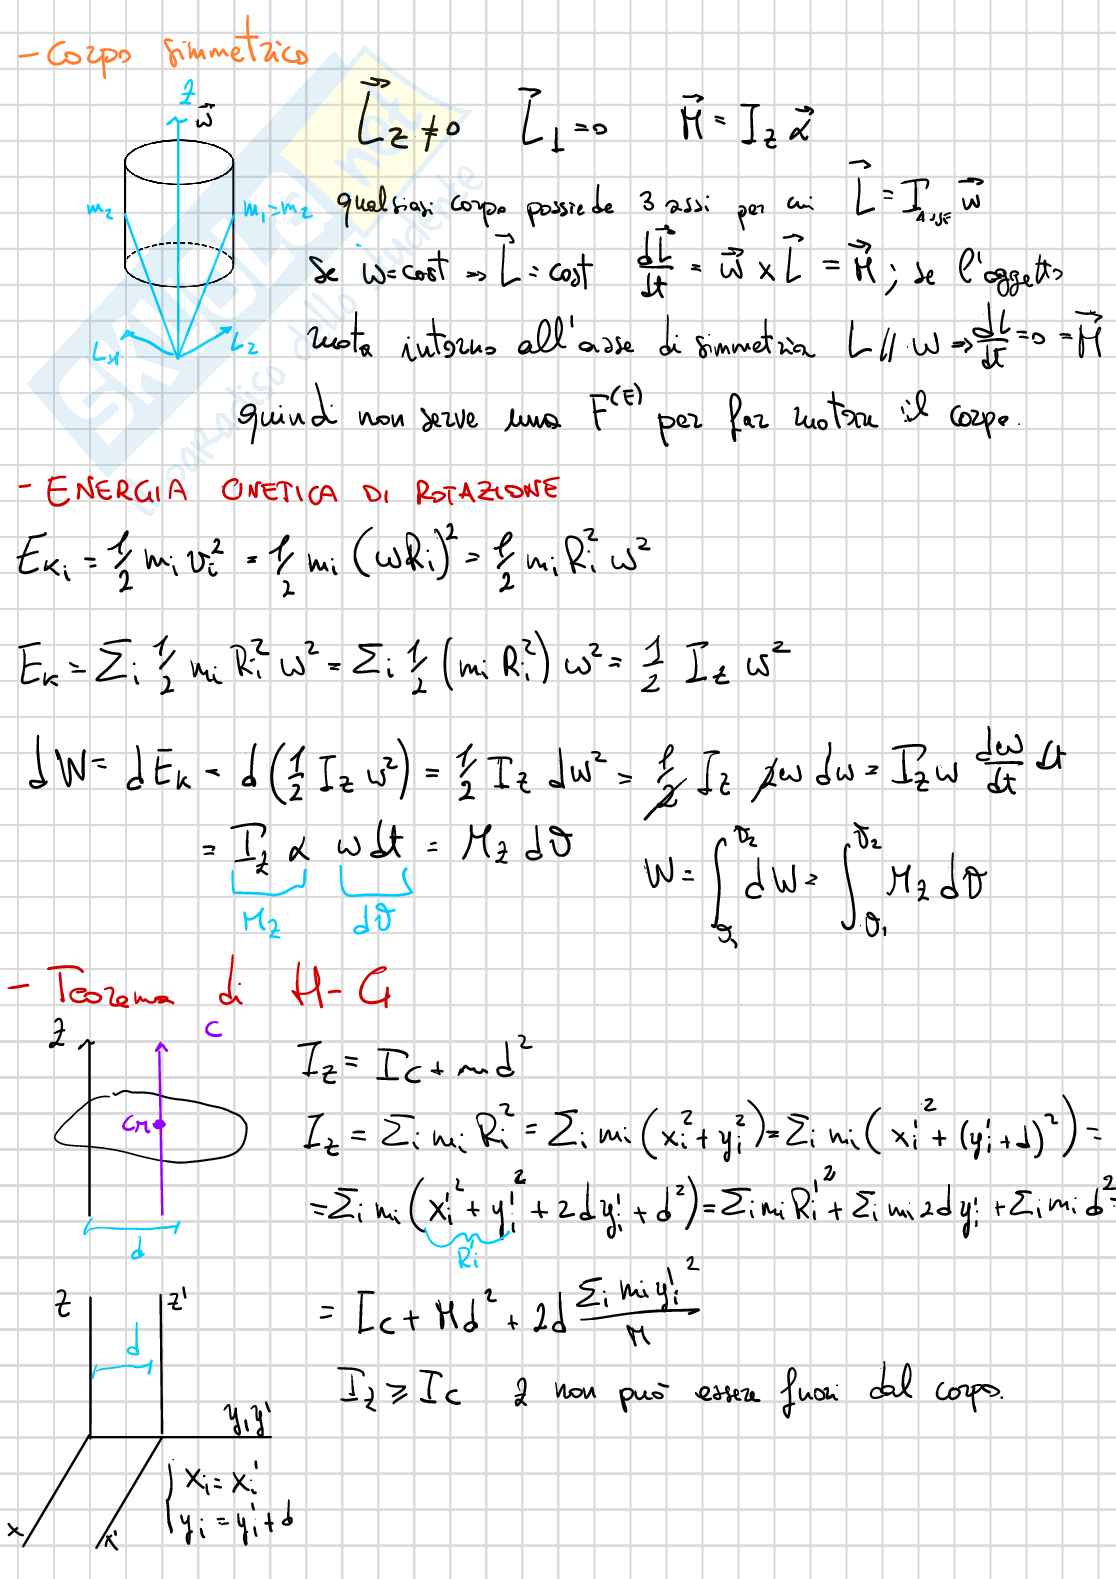 - Corpo simmetrico
z
ω⃗
m₂
m₁=m₂
L₁
L₂
L⃗z ≠ 0   L⃗⊥ = 0   M⃗ = Iz α⃗
qualsiasi corpo possiede 3 assi per cui L⃗ = I_ASSE ω⃗
Se ω = cost ⇒ L⃗ = cost   dL⃗/dt = ω⃗ × L⃗ = M⃗ ; se l'oggetto
ruota intorno all'asse di simmetria L // ω ⇒ dL/dt = 0 = M⃗
quindi non serve una F^(E) per far ruotare il corpo.
- ENERGIA CINETICA DI ROTAZIONE
E_Ki = 1/2 mi vi² = 1/2 mi (ωRi)² = 1/2 mi Ri² ω²
E_K = Σi 1/2 mi Ri² ω² = Σi 1/2 (mi Ri²) ω² = 1/2 Iz ω²
dW = dE_K = d(1/2 Iz ω²) = 1/2 Iz dω² = 1/2 Iz 2ω dω = Iz ω dω/dt dt
= Iz α ω dt = Mz dϑ
Mz
dϑ
W = ∫_ϑ₁^ϑ₂ dW = ∫_ϑ₁^ϑ₂ Mz dϑ
- Teorema di H-G
z
C
CM
d
Iz = Ic + md²
Iz = Σi mi Ri² = Σi mi (xi² + yi²) = Σi mi (xi'² + (yi' + d)²) =
= Σi mi (xi'² + yi'² + 2dyi' + d²) = Σi mi Ri'² + Σi mi 2d yi' + Σi mi d² =
Ri
= Ic + Md² + 2d Σi mi yi'² / M
Iz ⩾ Ic   z non può essere fuori dal corpo.
z
z'
d
y,y'
x
x'
{ xi = xi'
yi = yi' + d
skuola.net